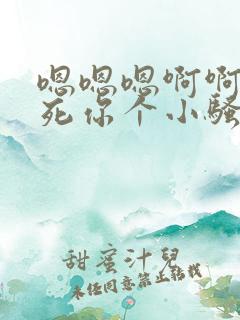 嗯嗯嗯啊啊
死你个小骚
甜蜜汁儿
未经同意禁止转载